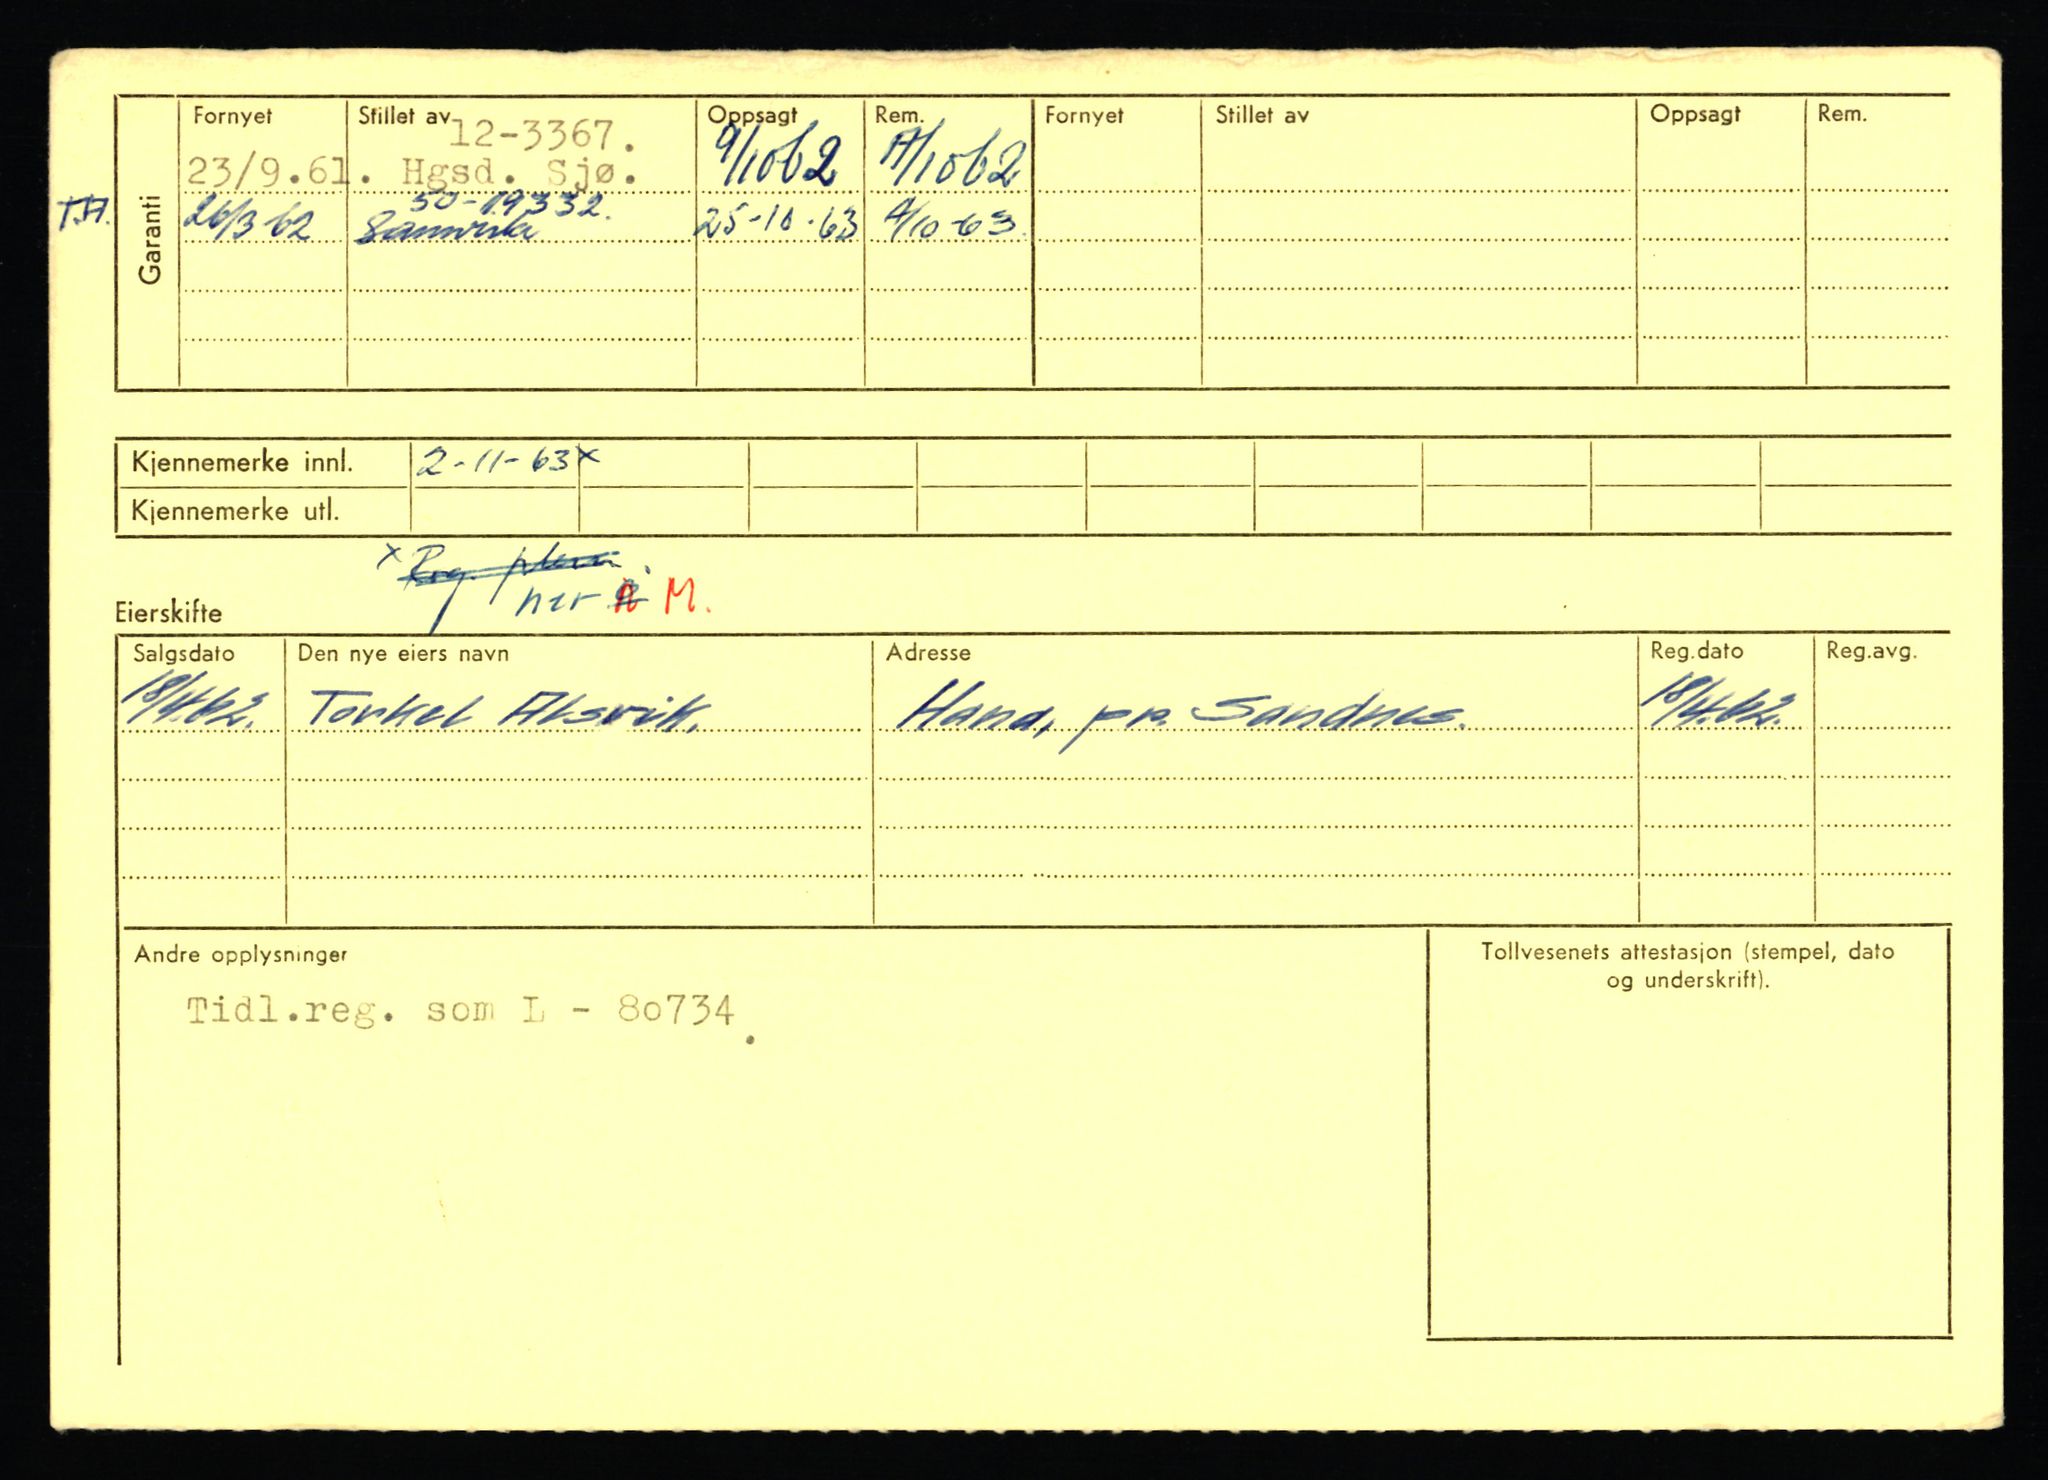 Garanti
Fornyet Stillet av Oppsagt Rem. Fornyet Stillet av Oppsagt Rem.
12-3367.
23/9.61. Hgsd. Sjø. 9/10 62 17/10 62
50-19332.
26/3-62 Samvirke 25-10-63 4/10-63.
Kjennemerke innl. 2-11-63 x
Kjennemerke utl.
x Reg.
her M.
Eierskifte
Salgsdato Den nye eiers navn Adresse Reg.dato Reg.avg.
18/4.62. Torkel Alsvik. Hana, pr. Sandnes. 18/4.62.
Andre opplysninger
Tidl.reg. som L - 80734.
Tollvesenets attestasjon (stempel, dato
og underskrift).